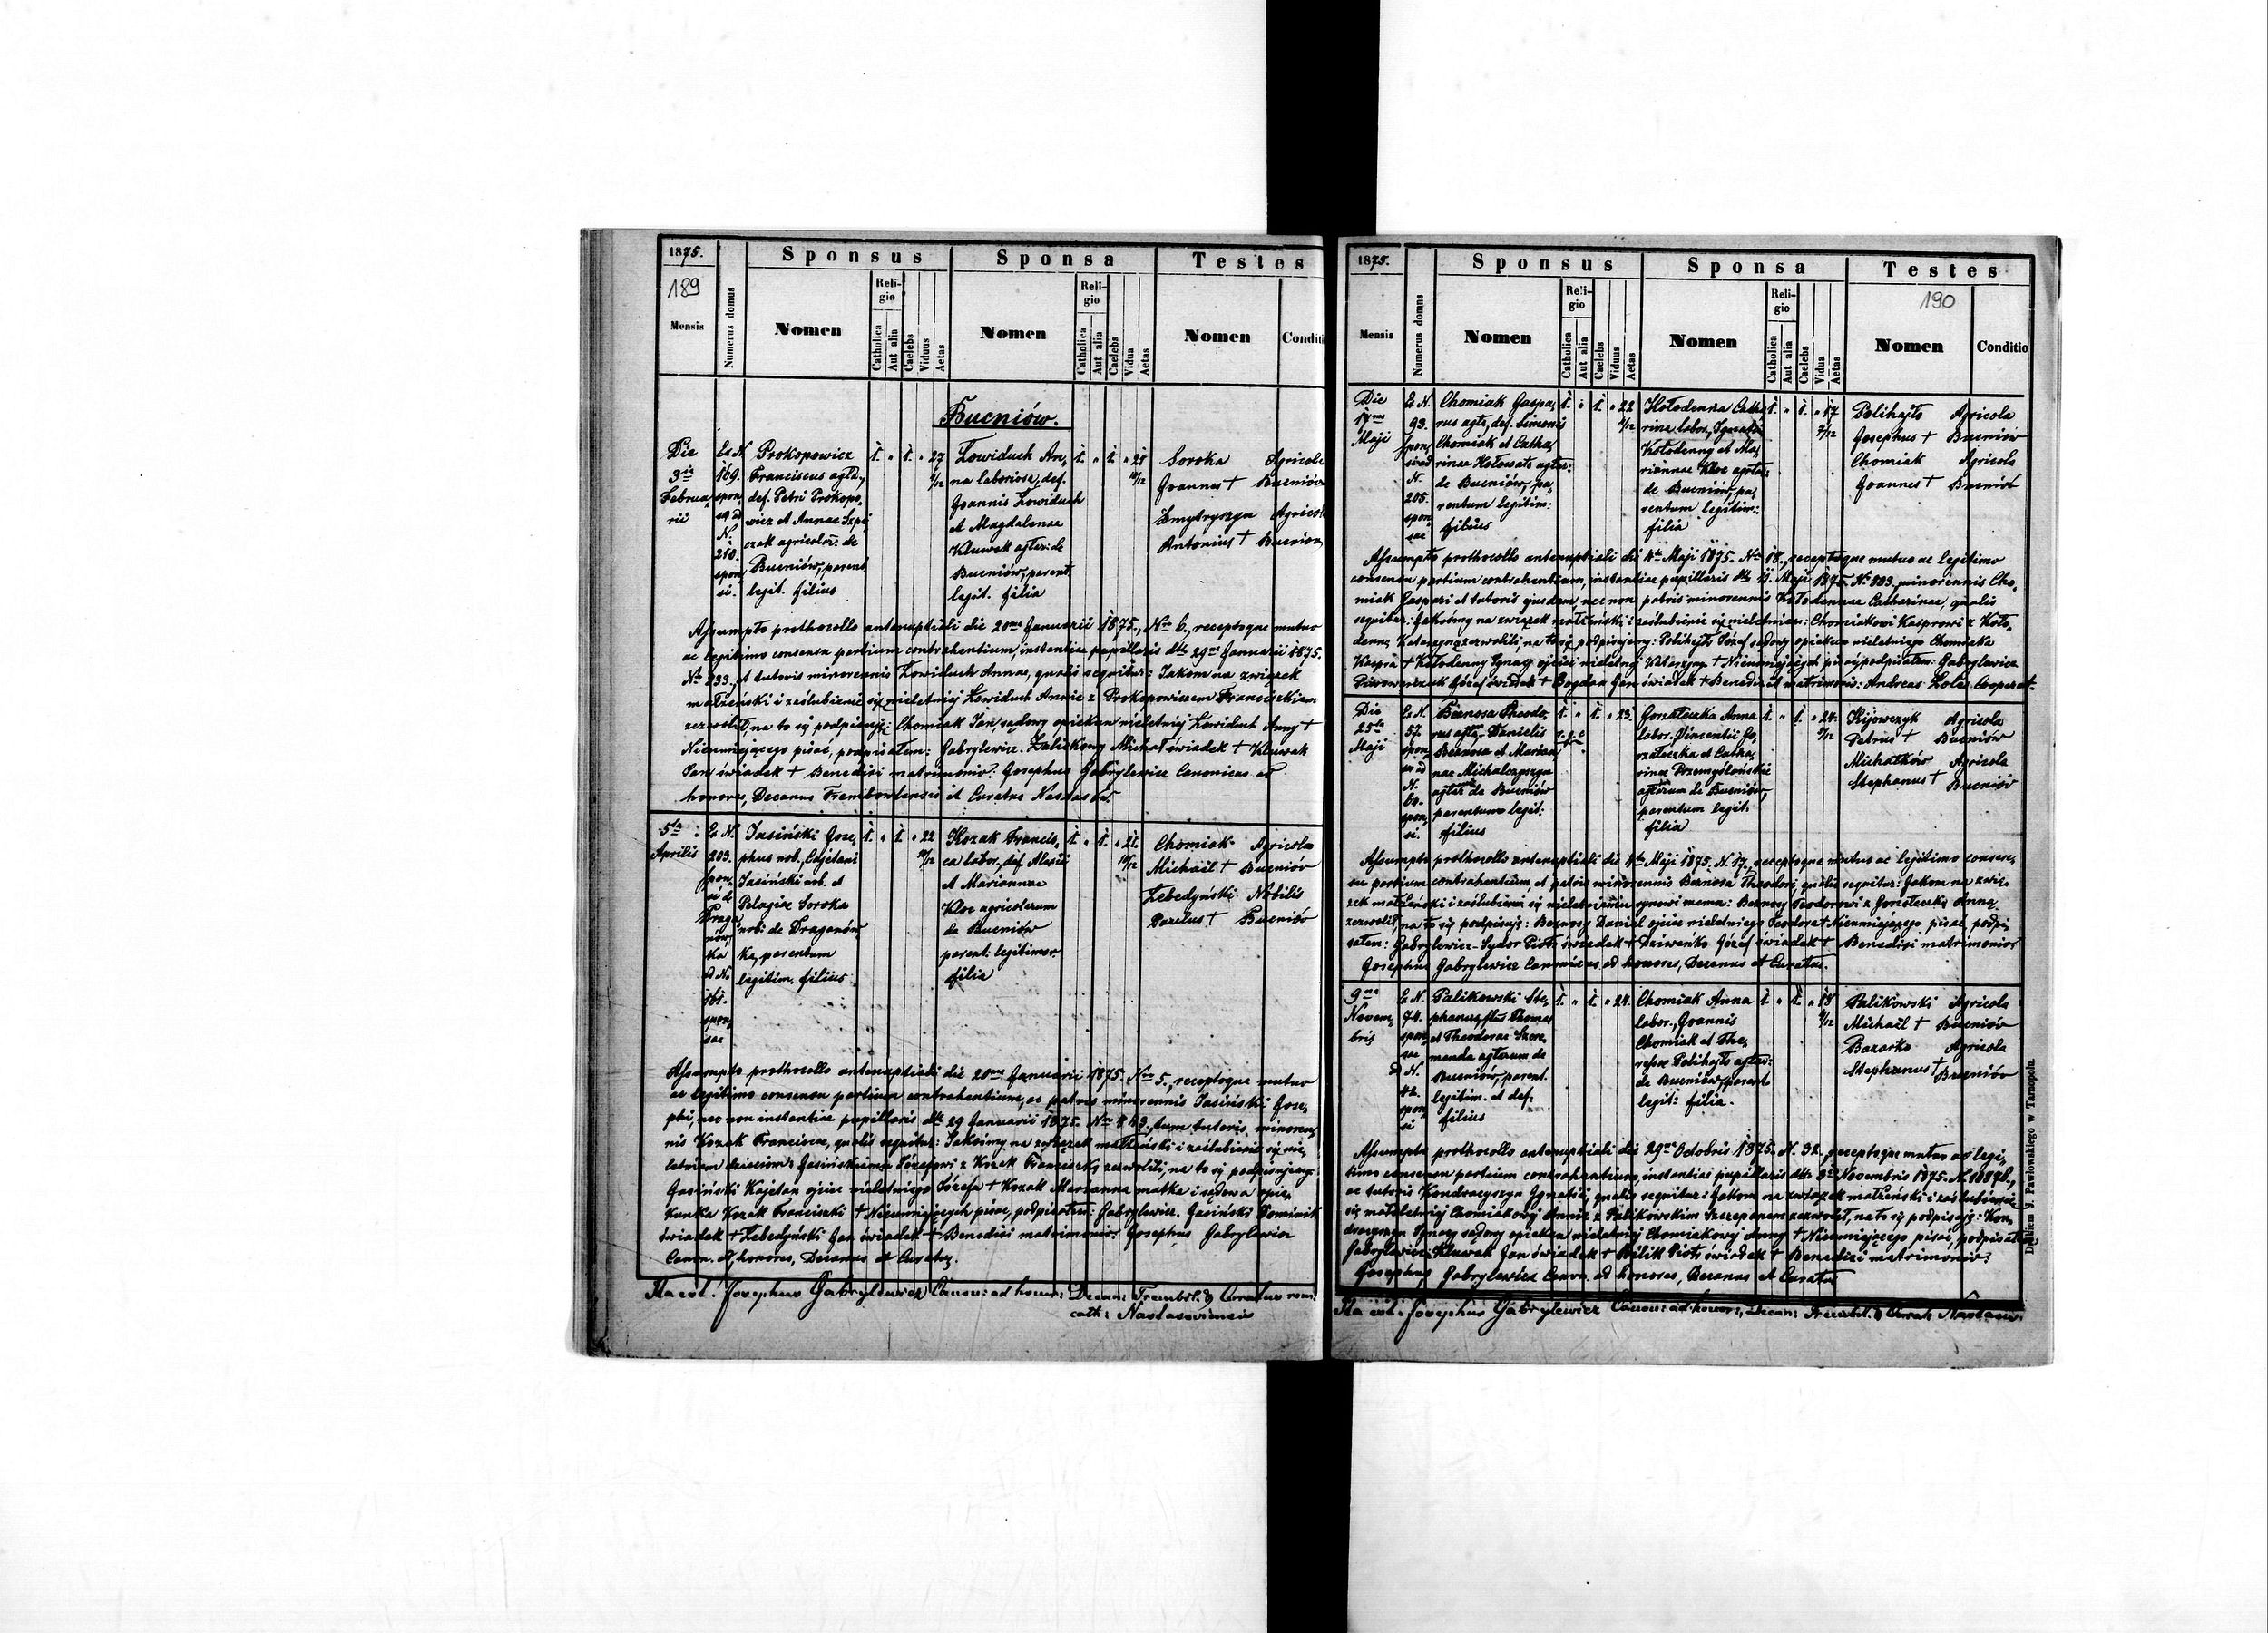 1875.
189
Mensis
Numerus domus
Sponsus
Nomen
Religio
Catholica
Aut alia
Caelebs
Viduus
Aetas
Sponsa
Nomen
Religio
Catholica
Aut alia
Caelebs
Vidua
Aetas
Testes
Nomen
Conditi
Bucniów.
Die
3ia
Februa,
rii
Ex N
169.
spon,
sa ad
N.
210.
spon,
si.
Prokopowicz
Franciscus agta,
def. Petri Prokopo,
wicz et Annae Szpi
czak agricolar: de
Bucniów, parent
legit. filius
1. " 1. " 27
Łowiduch An,
na laboriosa, def.
Joannis Łowiduch
et Magdalenae
Kluwak agtar: de
Bucniów, parent.
legit. filia
1. " 1. "
Soroka Agricola
Joannes + Bucniów
Dmytryszyn Agricola
Antonius + Bucniów
Assumpto prothocollo antenuptiali die 20ma Januarii 1875., Nro 6., receptoque mutuo
ac legitimo consensu partium contrahentium, instantiae pupillaris dto 29na Januarii 1875.
No 233., et tutoris minorennis Łowiduch Annae, qualis sequitur: Jakom na związek
małżeński i zaślubienie się nieletniej Łowiduch Annie z Prokopowiczem Franciszkiem
zezwolił, na to się podpisuję: Chomiak Jan sądowy opiekun nieletniej Łowiduch Anny +
Nieumiejącego pisać, podpisałem: Gabrylewicz. Zaliskowy Michał świadek + Kluwak
Jan świadek + Benedixi matrimonio: Josephus Gabrylewicz Canonicus ad
honores, Decanus Trembowlensis et Curatus Nastasów.
5ta
Aprilis
Ex N.
203.
spon,
si de
Draga
nów,
ka
ad N.
161.
spon,
sae
Jasiński Jose,
phus nob., Cajetani
Jasiński nob. et
Pelagiae Soroka
nob: de Draganów
ka, parentum
legitim. filius
1. " 1. " 22 10/12
Kozak Francis,
ca labor., def. Alexii
et Mariannae
Kloc agricolarum
de Bucniów
parent: legitimor.
filia
1. " 1. " 21. 10/12
Chomiak Agricola
Michaël + Bucniów
Lebedyński Nobilis
Paulus + Bucniów
Assumpto prothocollo antenuptiali die 20ma Januarii 1875. Nro 5., receptoque mutuo
ac legitimo consensu partium contrahentium, ac patris minorennis Jasiński Jose,
phi, nec non instantiae pupillaris dto 29 Januarii 1875. tum tutoris minoren,
nis Kozak Franciscae, qualis sequitur: Jakośmy na związek małżeński i zaślubienie się nie,
letniem dzieciom: Jasińskiemu Józefowi z Kozak Franciszką zezwolili, na to się podpisujemy:
Jasiński Kajetan ojciec nieletniego Józefa + Kozak Marianna matka i sądowa opie,
kunka Kozak Franciszki + Nieumiejących pisać, podpisałem: Gabrylewicz. Jasiński Dominik
świadek + Lebedyński Jan świadek + Benedixi matrimonio: Josephus Gabrylewicz
Canon. ad honores, Decanus et Curatus.
Ita est. Josephus Gabrylewicz Canon: ad honor: Decan: Trembl. & Curatus rom:
cath: Nastasoviensis
1875.
190
Mensis
Numerus domus
Sponsus
Nomen
Religio
Catholica
Aut alia
Caelebs
Viduus
Aetas
Sponsa
Nomen
Religio
Catholica
Aut alia
Caelebs
Vidua
Aetas
Testes
Nomen
Conditio
Die
17ma
Maji
Ex N.
93.
spon,
si ad
N.
205.
spon,
sae
Chomiak Gaspa,
rus agta, def. Simonis
Chomiak et Catha,
rinae Hołowata agtar:
de Bucniów, pa,
rentum legitim:
filius
1. " 1. " 22
Kołodenna Catha
rina labor., Ignatii
Kołodenny et Ma,
riannae Kloc agtar:
de Bucniów, pa,
rentum legitim:
filia
1. " 1. " 17 7/12
Polihajło Agricola
Josephus + Bucniów
Chomiak Agricola
Joannes + Bucniów
Assumpto prothocollo antenuptiali die 4ta Maji 1875. No 18., receptoque mutuo ac legitimo
consensu partium contrahentium, instantiae pupillaris dto 11. Maji 1875. No 283. minorennis Cho,
miak Gaspari et tutoris ejusdem, nec non patris minorennis Kołodennae Catharinae, qualis
sequitur: Jakośmy na związek małżeński i zaślubienie się nieletniem: Chomiakowi Kasprowi z Koło,
denną Katarzyną zezwolili, na to się podpisujemy: Polihajło Józef sądowy opiekun nieletniego Chomiaka
Kaspra + Kołodenny Ignacy ojciec nieletniej Katarzyny + Nieumiejących pisać, podpisałem: Gabrylewicz
Piwowarczuk Józef świadek + Bogdan Jan świadek + Benedixit matrimonio: Andreas Zolis Cooperat.
Die
25ta
Maji
Ex N.
57.
spon,
sa ad
N.
60.
spon,
si.
Beznosa Theodo,
rus agta, Danielis
Beznosa et Marian
nae Michalczyszyn
agtar de Bucniów
parentum legit:
filius
1. " 1. " 23.
r. g. c
Gorzałeczka Anna
labor. Vincentii Go,
rzałeczka et Catha,
rinae Przemyślańskie
agtarum de Bucniów,
parentum legit:
filia
1. " 1. " 24.
Kijowczyk Agricola
Petrus + Bucniów
Michałków Agricola
Stephanus + Bucniów
Assumpto prothocollo antenuptiali die 4ta Maji 1875. N. 17., receptoque mutuo ac legitimo consen,
su partium contrahentium, et patris minorennis Beznosa Theodori, qualis sequitur: Jakom na zwią,
zek małżeński i zaślubienie się nieletniemu synowi memu: Beznosy Teodorowi z Gorzałeczką Anną
zezwolił, na to się podpisuję: Beznosy Daniel ojciec nieletniego Teodora + Nieumiejącego pisać, podpi,
sałem: Gabrylewicz - Sydor Piotr świadek + Dziwańko Józef świadek + Benedixi matrimonio:
Josephus Gabrylewicz Canonicus ad honores, Decanus et Curatus.
9na
Novem,
bris
Ex N.
74.
spon,
sae
ad N.
42.
spon,
si
Palikowski Ste,
phanus, flus Thomae
et Theodorae Szere,
menda agtarum de
Bucniów, parent.
legitim. et def:
filius
1. " 1. " 24.
Chomiak Anna
labor., Joannis
Chomiak et The,
resiae Polihajło agtar:
de Bucniów, parent
legit: filia.
1. " 1. " 18
Palikowski Agricola
Michaël + Bucniów
Bazarko Agricola
Stephanus + Bucniów
Assumpto prothocollo antenuptiali die 29na Octobris 1875. N. 32., receptoque mutuo ac legi,
timo consensu partium contrahentium, instantiae pupillaris dto 3tia Novembris 1875.
ac tutoris Kondraczyszyn Ignatii, qualis sequitur: Jakom na związek małżeński i zaślubienie
się małoletniej Chomiakowy Annie z Palikowskim Szczepanem zezwolił, na to się podpisuję: Kon,
draczyszyn Ignacy sądowy opiekun nieletniej Chomiakowy Anny + Nieumiejącego pisać, podpisałem
Gabrylewicz. Kluwak Jan świadek + Bilik Piotr świadek + Benedixi matrimonio:
Josephus Gabrylewicz Canon. ad honores, Decanus et Curatus
Ita est: Josephus Gabrylewicz Canon: ad honor:, Decan: Trembl. & Curat. Nastasov.
Drukiem J. Pawłowskiego w Tarnopolu.